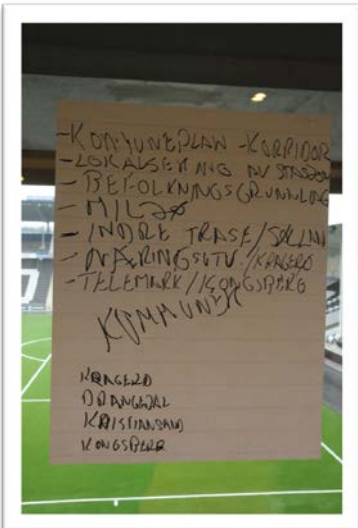 -KOMMUNEPLAN -KORRIDOR
-LOKALISERING AV STASJON
-BEFOLKNINGSGRUNNLAG
-MILJØ
-INDRE TRASE/SØRLAN
-NÆRINGSUTV./KRAGERØ
-TELEMARK/KONGSBERG
KOMMUNER
KRAGERØ
DRANGEDAL
KRISTIANSAND
KONGSBERG